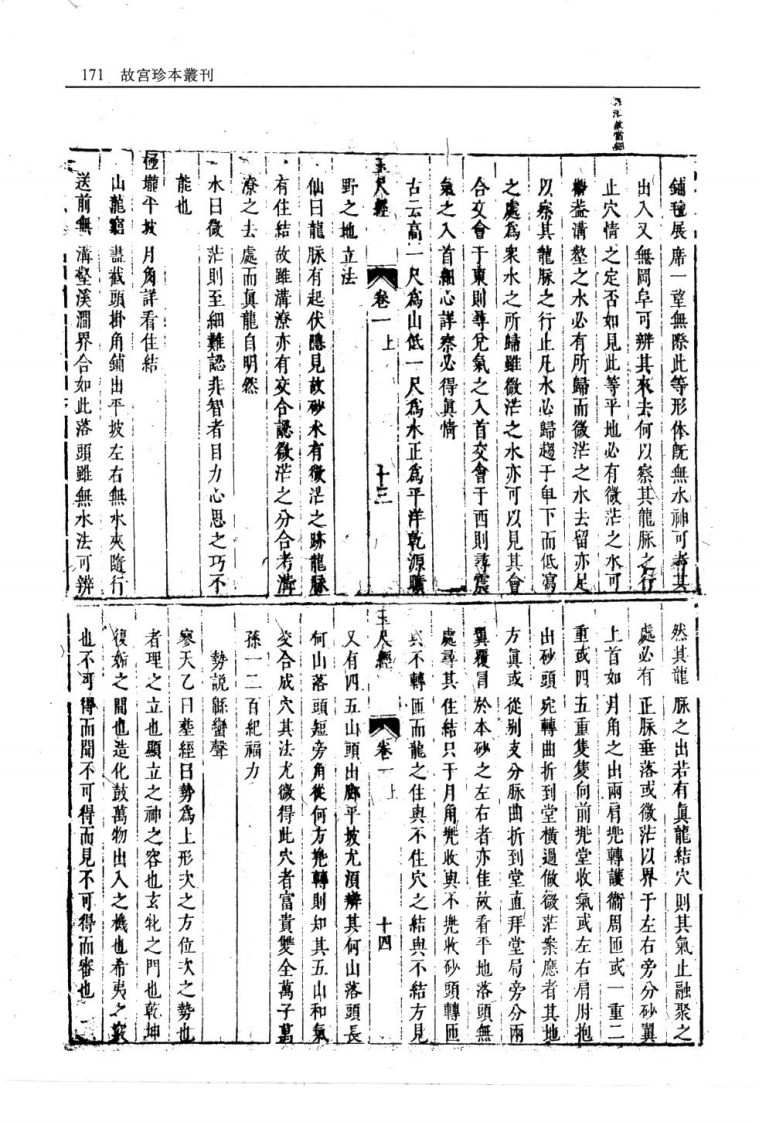 171 故宮珍本叢刊
鋪氊展席一望無際此等形体旣無水神可考其
出入又無岡阜可辨其來去何以察其龍脉之行
止穴情之定否如見此等平地必有微茫之水可
蓋溝壑之水必有所歸而微茫之水去留亦足
以察其龍脉之行止凡水必歸趨于卑下而低瀉
之處爲衆水之所歸雖微茫之水亦可以見其會
合交會于東則尋兌氣之入首交會于西則尋震
氣之入首細心詳察必得眞情
古云高一尺爲山低一尺爲水正爲平洋乾源曠
玉尺經 卷一上 十三
野之地立法
仙曰龍脉有起伏隱見故砂水有微茫之跡龍脉
有住結故雖溝潦亦有交合認微茫之分合考溝
潦之去處而眞龍自明然
水曰微茫則至細難認非智者目力心思之巧不
能也
極壠平坡月角詳看住結
山龍窮盡截頭掛角鋪出平坡左右無水夾隨行
送前無溝壑溪澗界合如此落頭雖無水法可辨
然其龍脉之出若有眞龍結穴則其氣止融聚之
處必有正脉垂落或微茫以界于左右旁分砂翼
上首如月角之出兩肩兜轉護衞周匝或一重二
重或四五重隻隻向前兜堂收氣或左右肩肘抱
出砂頭宛轉曲折到堂橫過做微茫案應者其地
方眞或從别支分脉曲折到堂直拜堂局旁分兩
翼覆冐於本砂之左右者亦佳故看平地落頭無
處尋其住結只于月角兜收與不兜收砂頭轉匝
與不轉匝而龍之住與不住穴之結與不結方見
玉尺經 卷一上 十四
又有四五山頭出脚平坡尤須辨其何山落頭長
何山落頭短旁角從何方兜轉則知其五山和氣
交合成穴其法尤微得此穴者富貴雙全萬子萬
孫一二百紀福力
勢說龢鸞聲
寥天乙曰葬經曰勢爲上形次之方位次之勢也
者理之立也顯立之神之容也玄牝之門也乾坤
復姤之間也造化鼓萬物出入之機也希夷之竅
也不可得而聞不可得而見不可得而審也